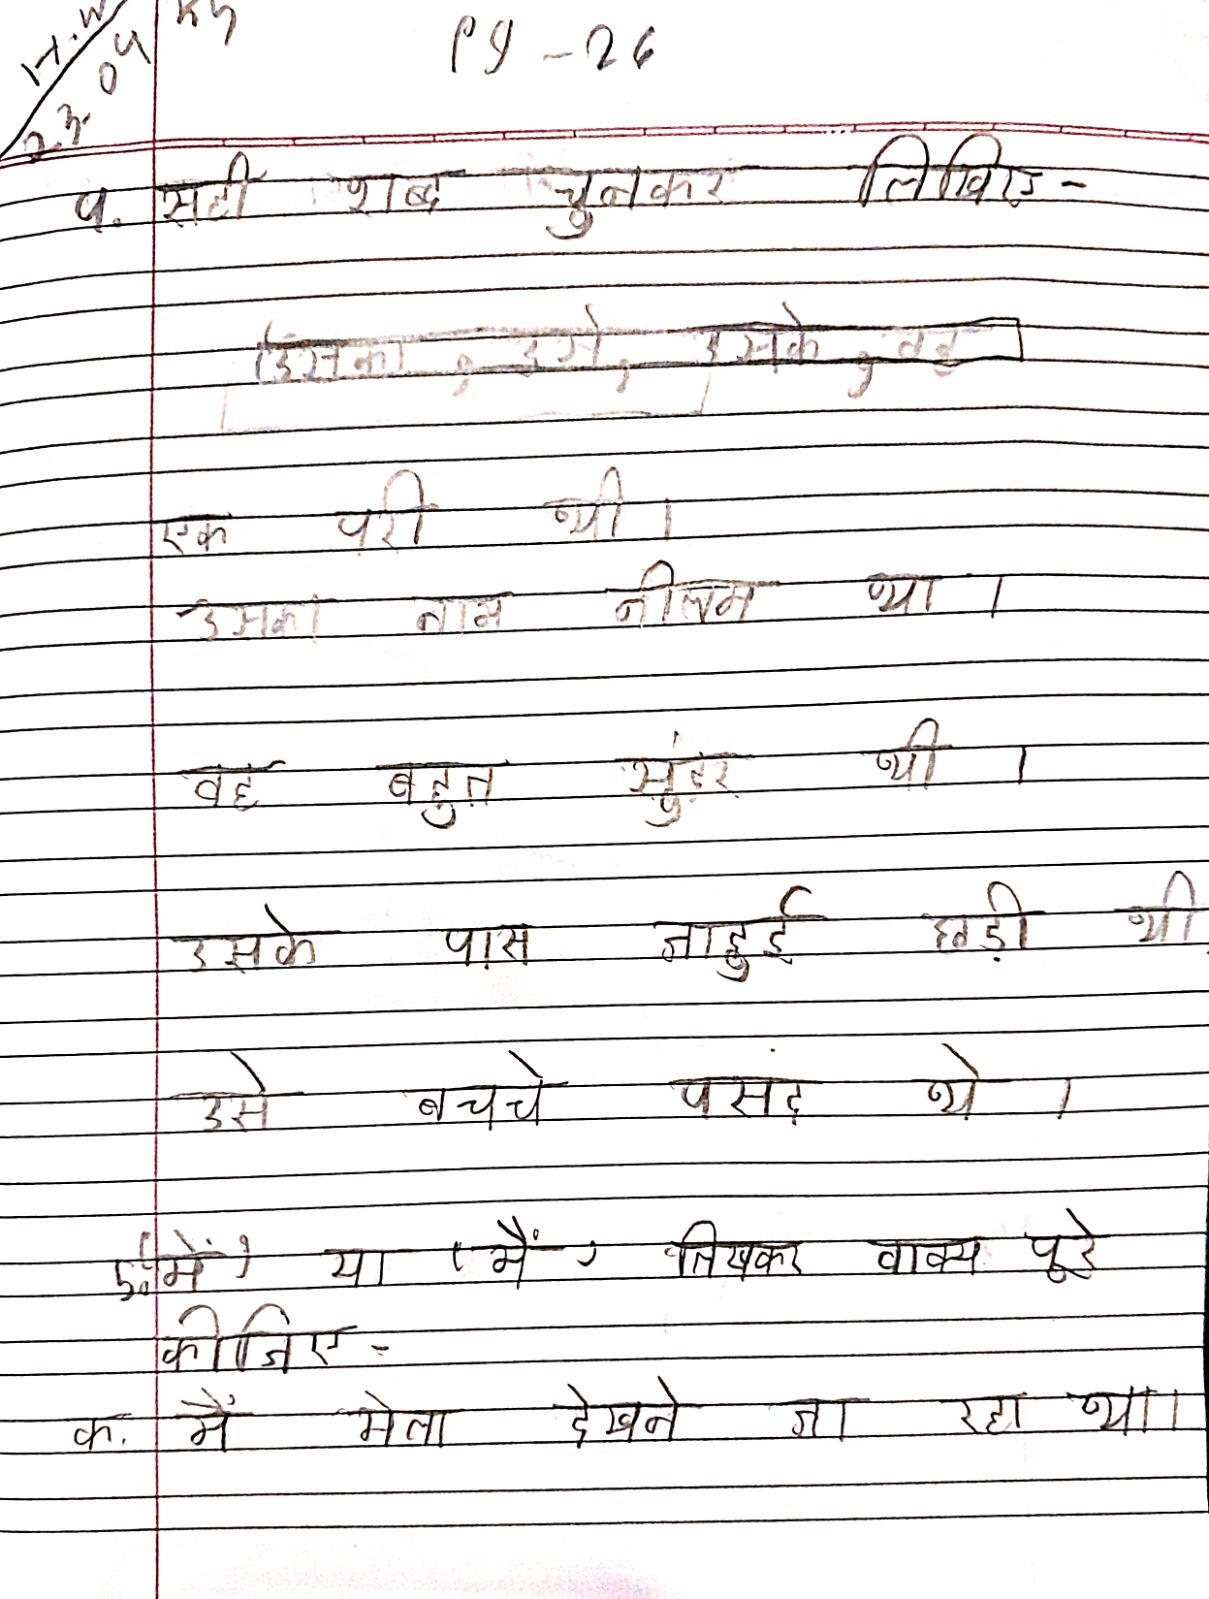 H.W
23.04
Pg - 26
५. सही शब्द चुनकर लिखिए -
उसका , उसे, उसके , वह
एक परी थी ।
उसका नाम नीलम था ।
वह बहुत सुंदर थी ।
उसके पास जादुई छड़ी थी
उसे बचचे पसंद थे ।
5. 'में' या 'मैं' लिखकर वाक्य पूरे
कीजिए -
क. मैं मेला देखने जा रहा था।